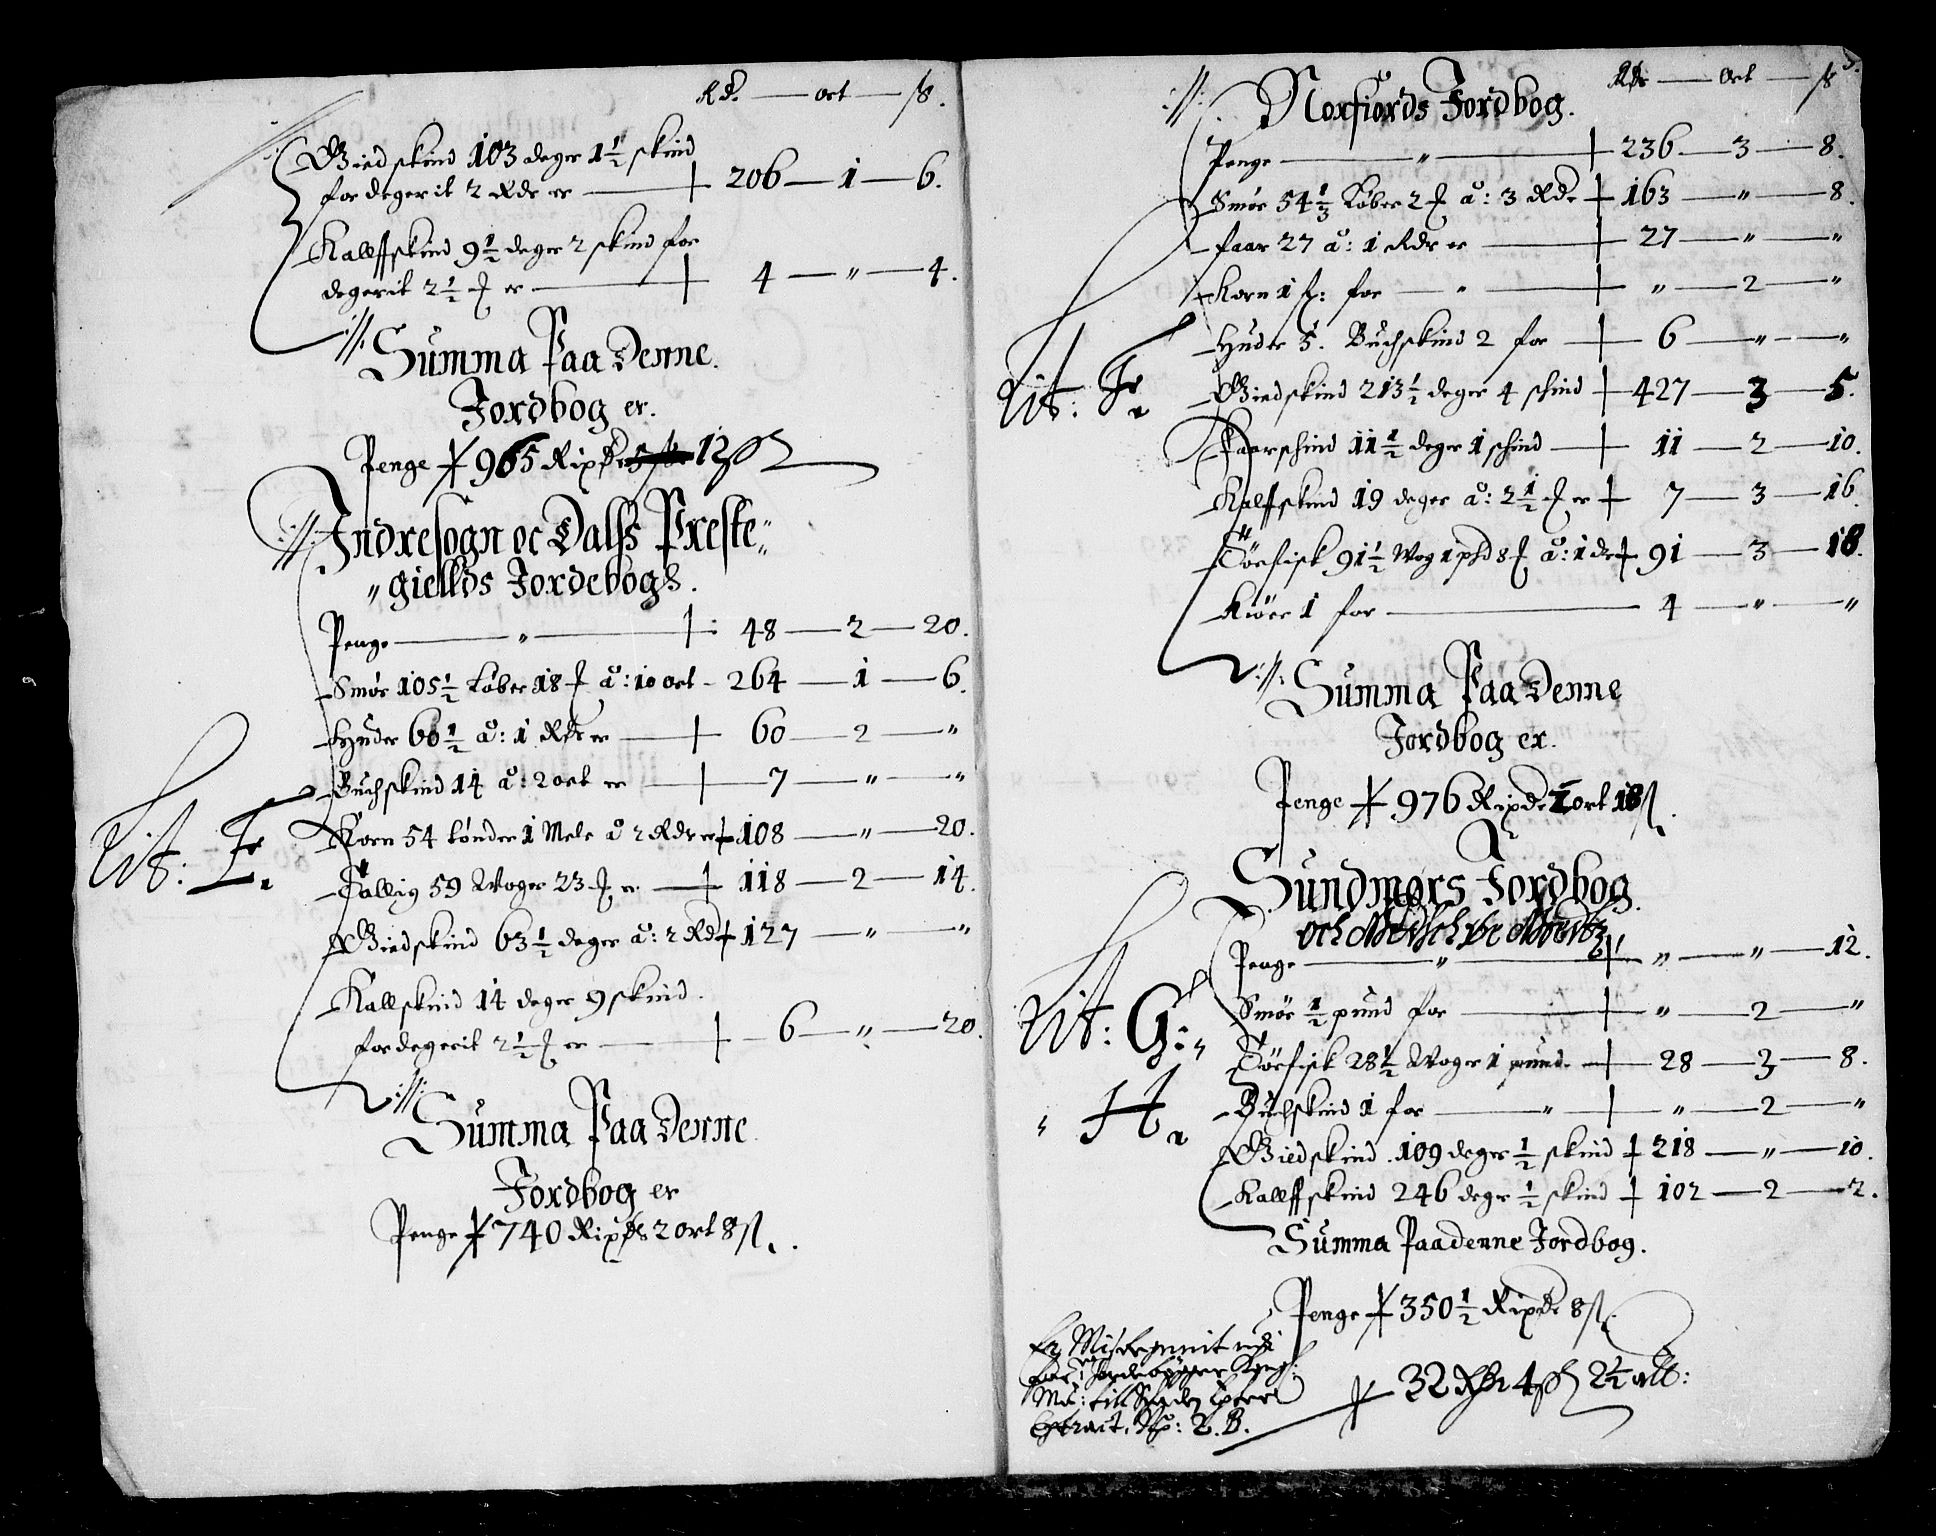 Rd. — ort — ß.
Giedskind 103 deger 1½ skind
for degerit 2 Rdr er — 206 — 1 — 6.
Kallfskind 9½ deger 2 skind for
degerit 2½ ƒ er — 4 — " — 4.
Summa Paa Denne
Jordbog er.
Penge 965 Rixdr 12 ß
Indresogn oc Dalss Preste-
gieldds Jordebogh.
Penge — " — 48 — 2 — 20.
Smør 105½ Løber 18 ƒ å: 10 ort - 264 — 1 — 6.
Huder 60½ å: 1 Rdr er — 60 — 2 — "
Buchskind 14 å: 2 ort er — 7 — " — "
Lit: E.
Korn 54 tønder 1 Mele å 2 Rdr er 108 — " — 20.
Tallig 59 Woger 23 ƒ er — 118 — 2 — 14.
Giedskind 63½ deger å: 2 Rd 127 — " — "
Kallskind 14 deger 9 skind
for degerit 2½ ƒ er — 6 — " — 20.
Summa Paa Denne
Jordbog er
Penge 740 Rixdr 2 ort 8 ß.
Rdr — Ort — ß
Norfiords Jordbog.
Penge — " — 236 — 3 — 8.
Smør 54⅓ Løber 2 ƒ å: 3 Rdr 163 — " — 8.
faar 27 å: 1 Rdr er — 27 — " — "
Korn 1 ƒ: for — " — 2 — "
Huder 5. Buchskind 2 for — 6 — " — "
Lit: F.
Giedskind 213½ deger 4 skind 427 — 3 — 5.
Faarskind 11½ deger 1 skind — 11 — 2 — 10.
Kalfskind 19 deger å: 2½ ƒ er 7 — 3 — 16
Tørfisk 91½ Wog 1 pd 8 ƒ å: 1 dr 91 — 3 — 18.
Kiør 1 for — 4 — " — "
Summa Paa Denne
Jordbog er.
Penge 976 Rixdr 1 ort 18 ß.
Sundmørs Jordbog
Penge — " — " — " — 12.
Lit: G:
Smør ½ pund for — " — 2 — "
Tørfisk 28½ Woger 1 pund — 28 — 3 — 8.
H.
Buchskind 1 for — " — " — 2 — "
Giedskind 109 deger ½ skind 218 — " — 10.
Kallfskind 246 deger ½ skind 102 — 2 — 2.
Summa Paa denne Jordbog.
Penge 350½ Rixdr 8 ß.
Er Misregnnit udi
Ms: till
Extract. No: 2. B.
32 Rdr 4 ß 2½ alb: